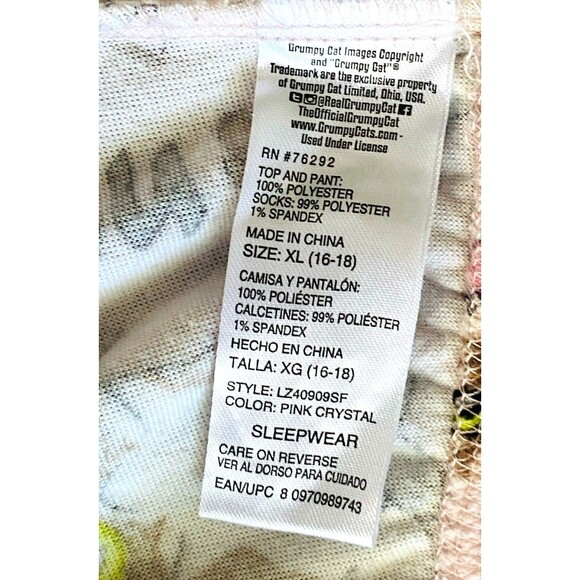 Grumpy Cat Images Copyright
and "Grumpy Cat"®
Trademark are the exclusive property
of Grumpy Cat Limited, Ohio, USA.
@RealGrumpyCat
TheOfficialGrumpyCat
www.GrumpyCats.com -
Used Under License
RN #76292
TOP AND PANT:
100% POLYESTER
SOCKS: 99% POLYESTER
1% SPANDEX
MADE IN CHINA
SIZE: XL (16-18)
CAMISA Y PANTALÓN:
100% POLIÉSTER
CALCETINES: 99% POLIÉSTER
1% SPANDEX
HECHO EN CHINA
TALLA: XG (16-18)
STYLE: LZ40909SF
COLOR: PINK CRYSTAL
SLEEPWEAR
CARE ON REVERSE
VER AL DORSO PARA CUIDADO
EAN/UPC 8 0970989743